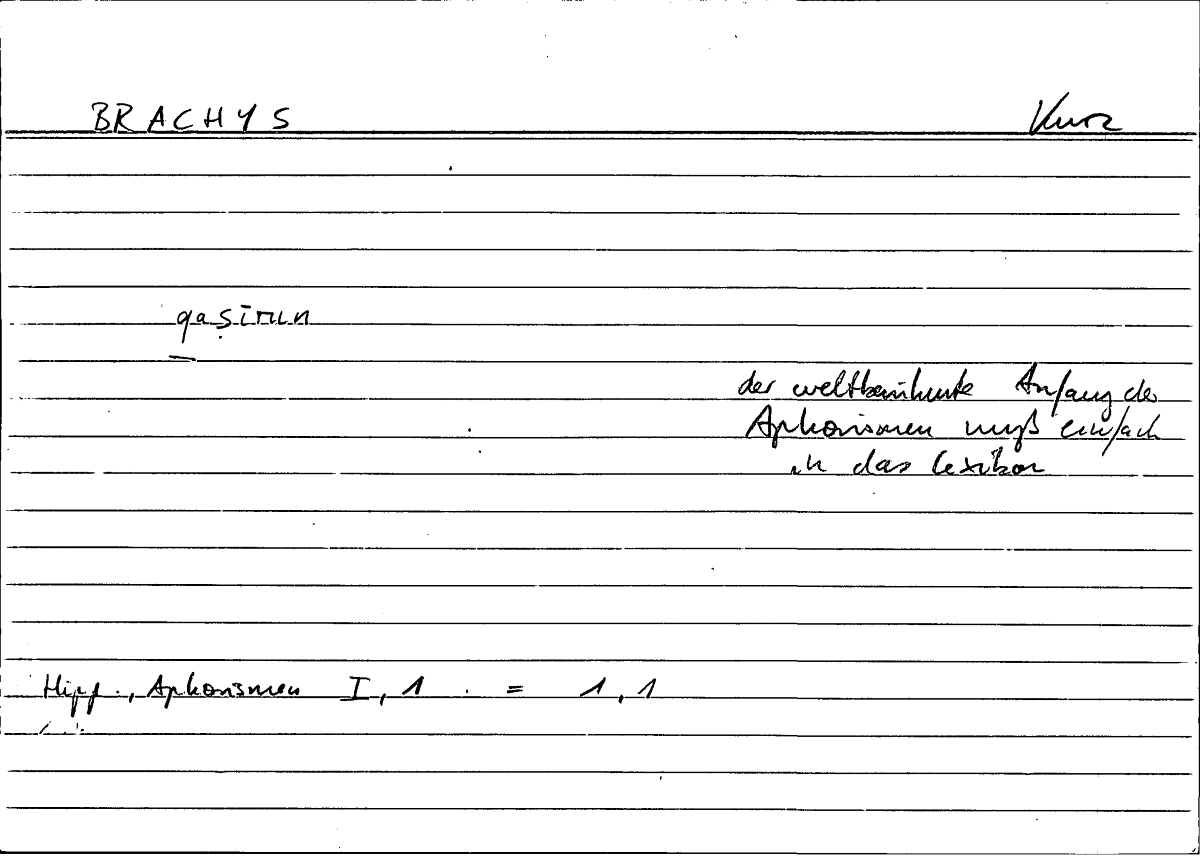 BRACHYS Kurz
qaṣīrun
der weltberühmte Anfang der
Aphorismen muß einfach
in das Lexikon
Hipp., Aphorismen I, 1 = 1,1